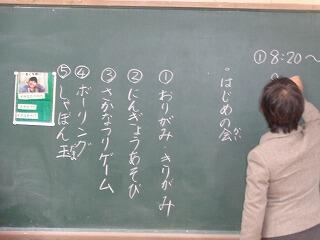 ① 8:20～
。はじめの会
かい
① おりがみ・きりがみ
② にんぎょうあそび
③ さかなつりゲーム
④ ボーリング
⑤ しゃぼん玉
だま